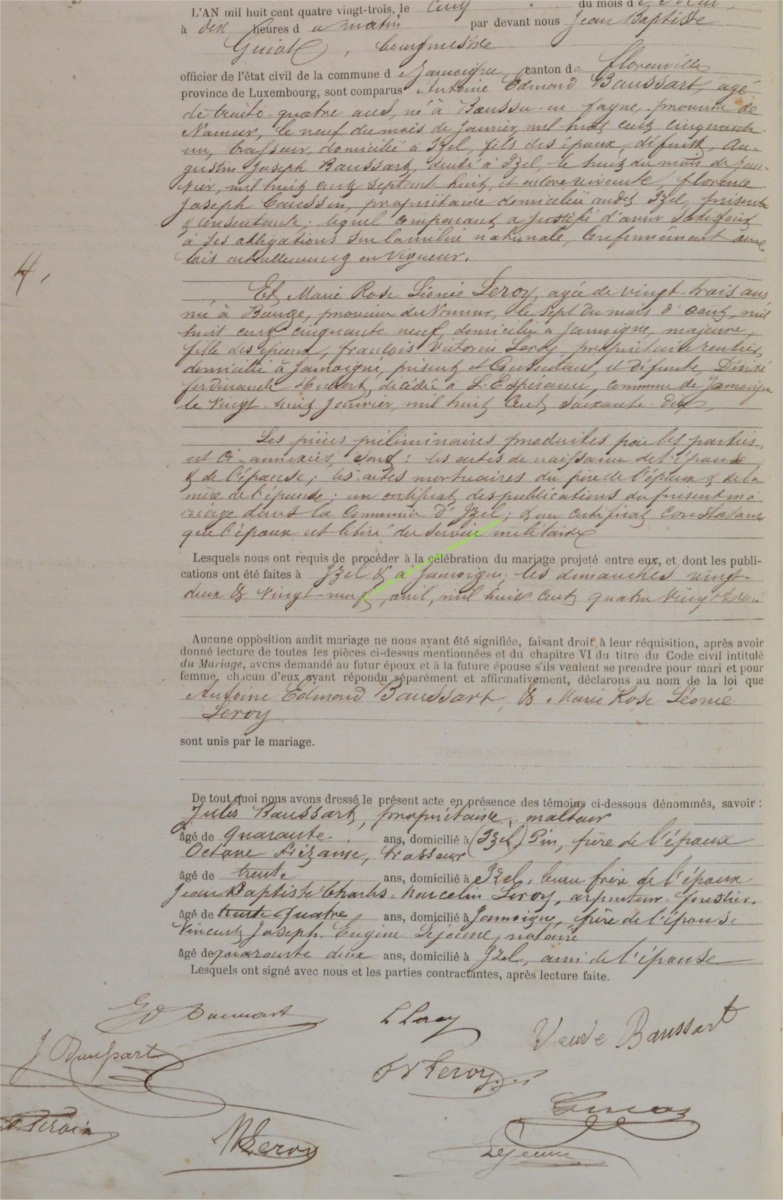 L'AN mil huit cent quatre vingt-trois, le cinq du mois d
à dix heures d u matin par devant nous Jean Baptiste
bourgmestre
officier de l'état civil de la commune d e Jamoigne canton d e Florenville
province de Luxembourg, sont comparus Antoine Edmond Baussart, agé
de trente-quatre ans, né à Boussu-en-fagne, province de
Namur, le neuf du mois de Janvier, mil huit cent cinquante
un, brasseur, domicilié à Izel, fils des époux, défunt, Au-
gustin Joseph Baussart, décédé à Izel, le huit du mois de Jan-
vier, mil huit cent septante huit, et encore vivante, Florence
Joseph propriétaire domiciliée audit Izel, présente
& consentante; lequel comparant a justifié d'avoir satisfait
à ses obligations sur la milice nationale, conformément aux
lois actuellement en vigueur.
4,
Et, Marie Rose Léonie Leroy, agée de vingt trois ans
née à province de Namur, le sept du mois d'août, mil
huit cent cinquante neuf, domiciliée à Jamoigne, majeure,
fille des époux, françois Victorin Leroy, propriétaire rentier,
domicilié à Jamoigne, présent & consentant, et défunte, Désirée
ferdinande Hubert, décédée à L'Espérance, commune de Jamoigne
le vingt-huit Janvier, mil huit cent soixante-dix,
Les pièces préliminaires produites par les parties,
et ci-annexées, sont: les actes de naissance de l'époux
& de l'épouse; les actes mortuaires du père de l'époux & de la
mère de l'épouse; un certificat des publications du présent ma
riage dans la commune d'Izel; & un certificat constatant
que l'époux est libéré du service militaire
Lesquels nous ont requis de procéder à la célébration du mariage projeté entre eux, et dont les publi-
cations ont été faites à Izel & à Jamoigne, les dimanches vingt-
deux & vingt-neuf avril, mil huit cent quatre vingt-trois
Aucune opposition audit mariage ne nous ayant été signifiée, faisant droit à leur réquisition, après avoir
donné lecture de toutes les pièces ci-dessus mentionnées et du chapitre VI du titre du Code civil intitulé
du Mariage, avons demandé au futur époux et à la future épouse s'ils veulent se prendre pour mari et pour
femme, chacun d'eux ayant répondu séparément et affirmativement, déclarons au nom de la loi que
Antoine Edmond Baussart, & Marie Rose Léonie
Leroy
sont unis par le mariage.
De tout quoi nous avons dressé le présent acte en présence des témoins ci-dessous dénommés, savoir :
Jules Baussart, propriétaire, malteur
âgé de quarante ans, domicilié à (Izel) Pin, frère de l'époux
Octave brasseur
âgé de trente ans, domicilié à Izel, beau frère de l'époux
Jean Baptiste Charles Marcelin Leroy, arpenteur-forestier
âgé de trente quatre ans, domicilié à Jamoigne, frère de l'épouse
Vincent, Joseph, Eugène Lejeune, notaire
âgé de quarante deux ans, domicilié à Izel, ami de l'épouse
Lesquels ont signé avec nous et les parties contractantes, après lecture faite.
Ed Baussart L Leroy Veuve Baussart
J Baussart
Leroy
M Leroy Lejeune